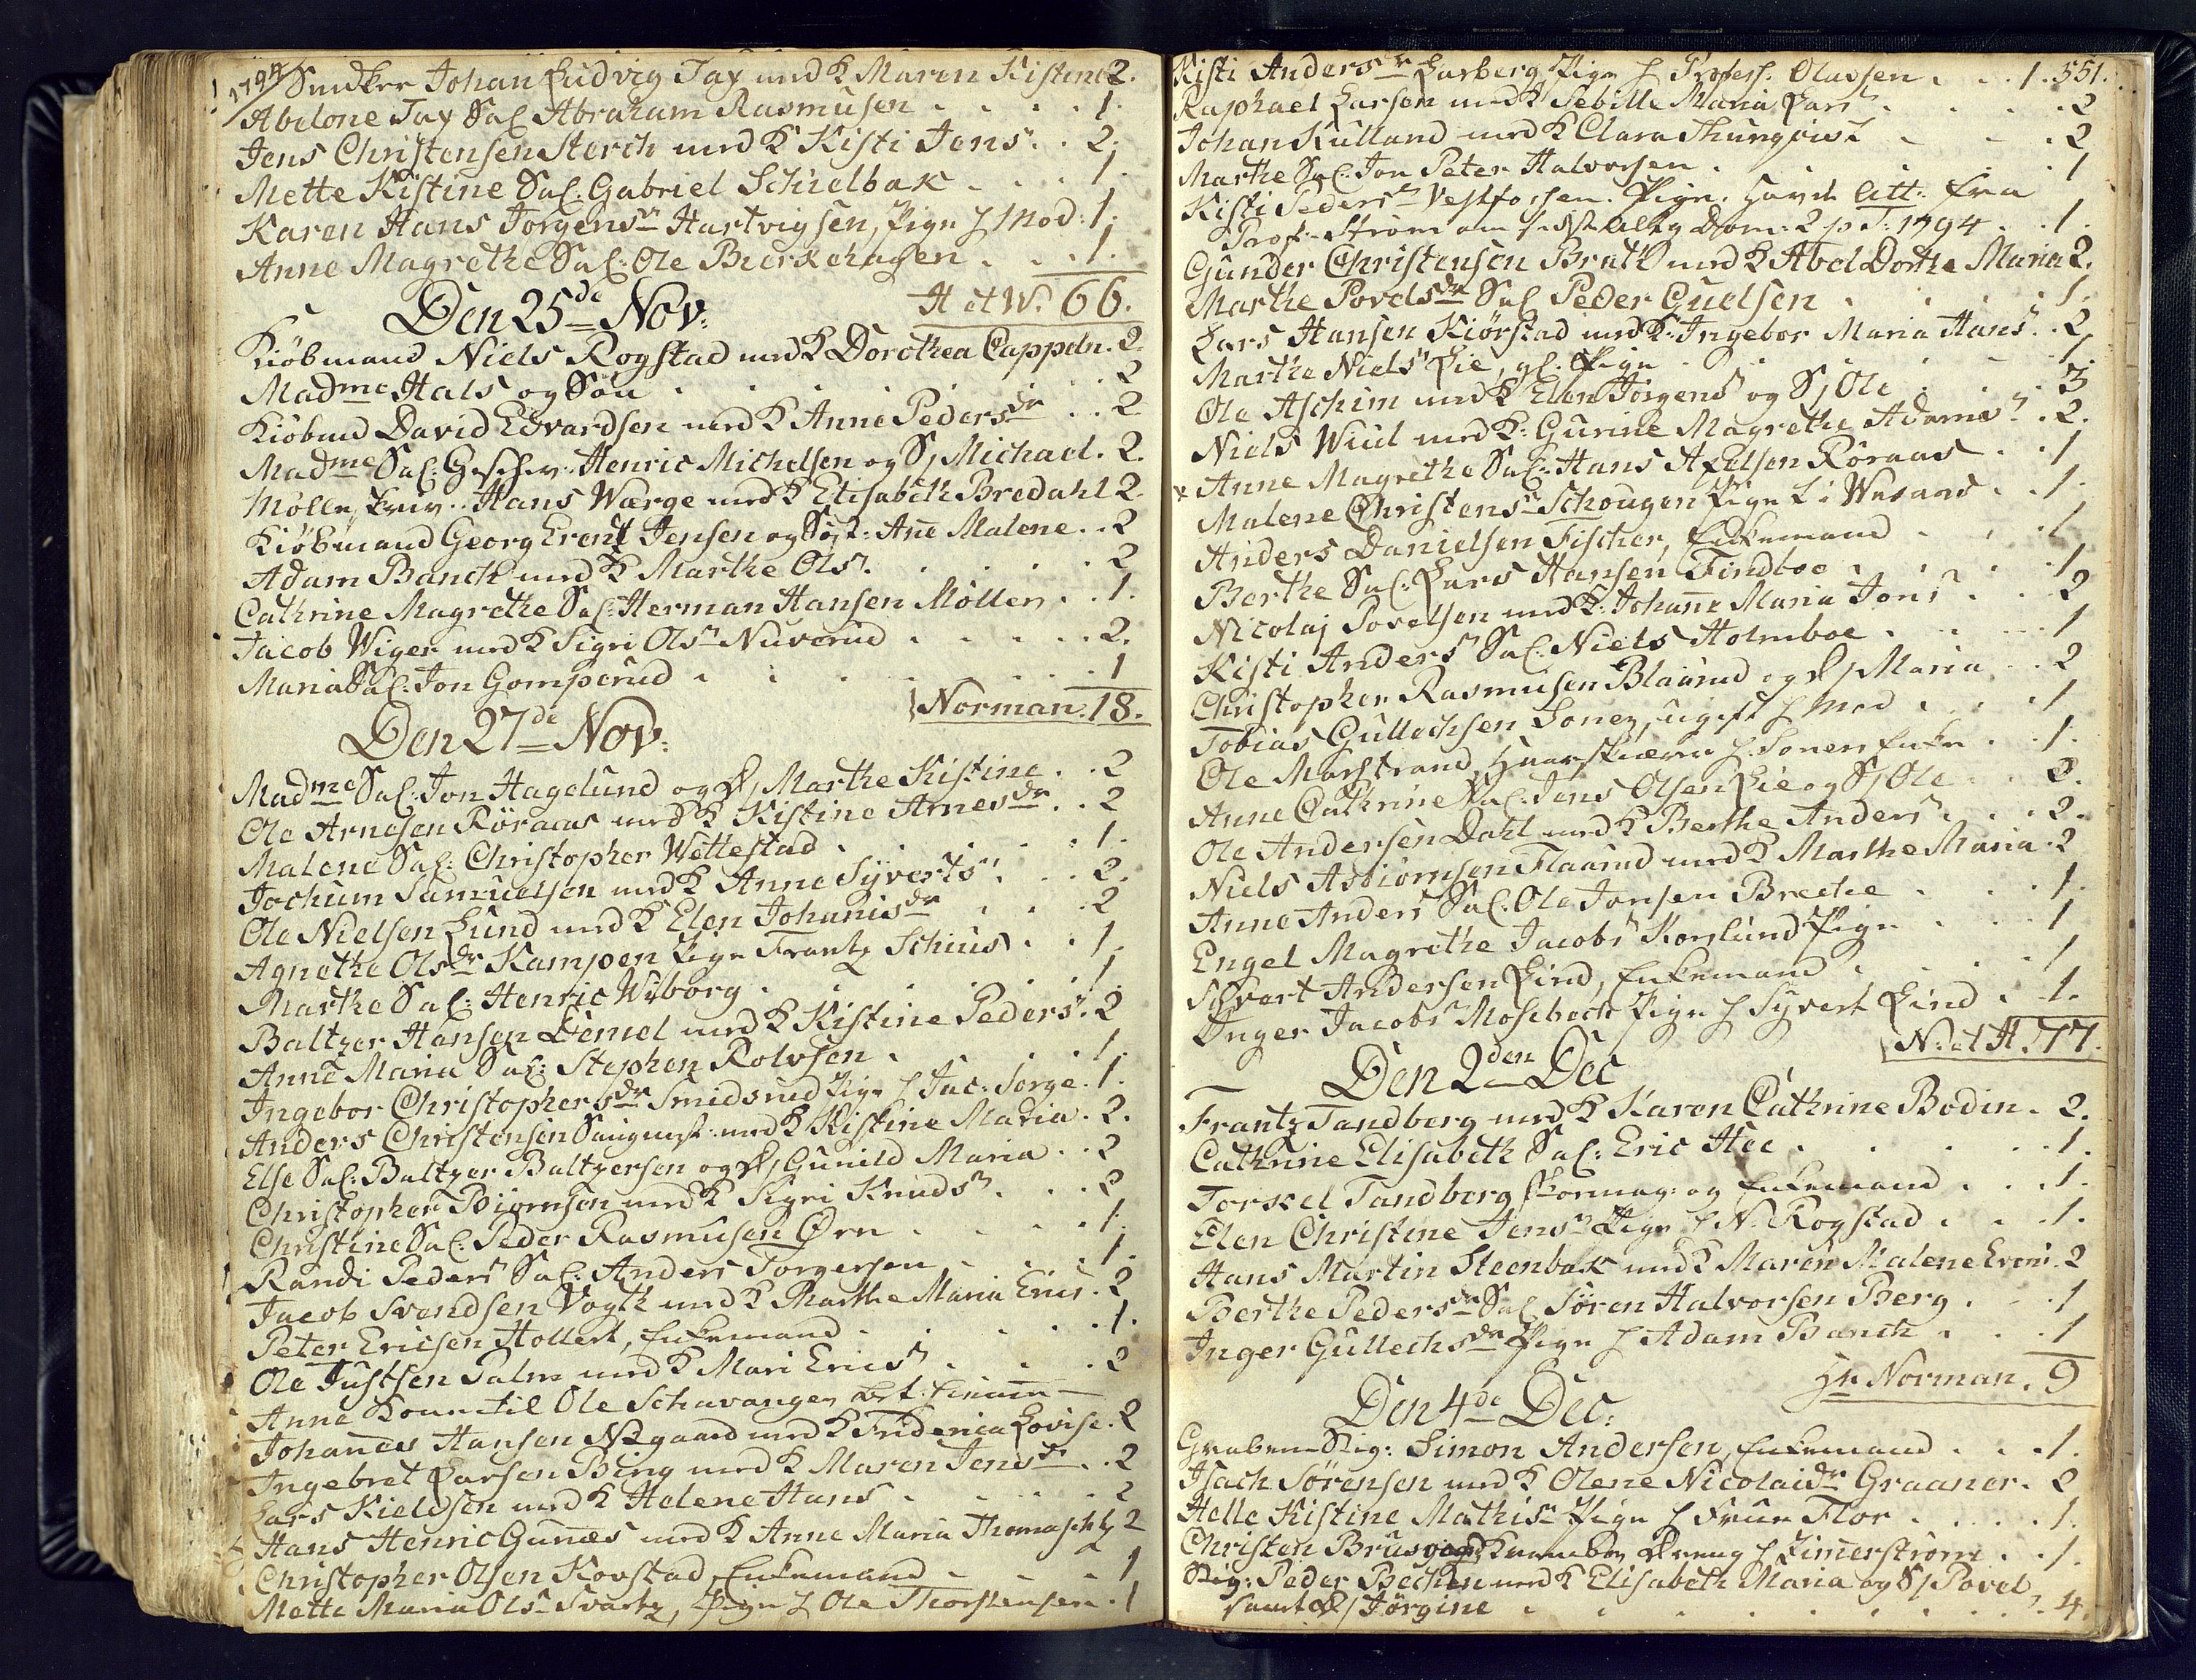 1794
Snidker Johan Ludvig Tax med K Maren Kistine 2.
Abelone Tax Sal Abraham Rasmusen . . . 1.
Jens Christensen Sterch med K Kisti Jens . . 2.
Mette Kistine Sal: Gabriel Schielbak . . . 1.
Karen Hans Jörgens Hartvigsen, Pige h Mod: 1.
Anne Magrethe Sal: Ole Bierkehagen . . . 1.
H et W. 66.
Den 25de Nov:
Kiöbmand Niels Rogstad med K Dorothea Cappeln. 2
Madme Hals og Sön . . . 2
Kiöbmd David Edvardsen med K Anne Pedersdr . . 2
Madme Sal: Henric Michelsen og S/ Michael. 2.
Hans Wærge med K Elisabeth Bredahl 2
Kiöbmand Georg Erenst Jensen og Söst: Ane Malene . . 2
Adam Banch med K Marthe Ols . . . 2
Cathrine Magrethe Sal: Herman Hansen Möller . . 1.
Jacob Wiger med K Sigri Ols Nuverud . . . 2.
Maria Sal: Jon Gomperud . . . 1
Norman. 18.
Den 27de Nov:
Madme Sal: Jon Hagelund og D/ Marthe Kistine . . 2
Ole Arnesen Röraas med K Kistine Arnesdr . . 2
Malene Sal: Christopher Wettestad . . . 1.
Jochum Samuelsen med K Anne Syverts . . . 2.
Ole Nielsen Lund med K Elen Johanisdr . . 2
Agnethe Olsdr Kampen Pige Frantz Schius . . 1.
Marthe Sal: Henric Wiborg . . . 1.
Baltzer Hansen Demel med K Kistine Peders. 2
Anne Maria Sal: Stephen Rolvsen . . . 1.
Ingebor Christophersdr Smidsrud Pige h Jac: Sorge. 1.
Anders Christensen med K Kistine Maria . 2.
Else Sal: Baltzer Baltzersen og D/ Gunild Maria . . 2
Christopher Biörnsen med K Sigri Knuds . . . 2
Christine Sal: Peder Rasmusen Örn . . . 1.
Randi Peders Sal: Anders Torgersen . . . 1.
Jacob Svendsen Vogth med K Marthe Maria Erics. 2
Peter Ericsen Hollert, Enkemand . . . 1.
Ole Justsen Palm med K Mari Erics . . . 2
Anne Kone til Ole Schavanger
Johannes Hansen Nygaard med K Friderica Lovise. 2
Ingebret Larsen Bing med K Maren Jensdr . . 2
Lars Kieldsen med K Helene Hans . . . 2
Hans Henric Gunnes med K Anne Maria 2
Christopher Olsen Kovstad, Enkemand . . . 1
Mette Maria Ols Svartz, Pige h Ole Thorstensen . 1
Kisti Andersdr Larberg Pige h Profess. Olavsen . . . 1. 551.
Raphael Larsen med K Sebille Maria Lars . . . 2
Johan Kulland med K Clara Thunqvist . . . 2
Marthe Sal: Jon Peter Halvorsen . . . 1
Kisti Peders Vestfossen. Pige. havde Att: fra
Prof. Ström om Dom: 2 p T: 1794 . . 1.
Gunder Christensen Brath med K Abel Dorthe Maria 2.
Marthe Povelsdr Sal Peder Guelsen . . . 1.
Lars Hansen Kiörstad med K: Ingebor Maria Hans . . 2
Marthe Niels Lie, gl. Pige . . . 1
Ole Aschim med K Elen Jörgens og S/ Ole . . . 3
Niels Wiul med K: Gurine Magrethe Adams . . 2.
Anne Magrethe Sal: Hans Axelsen Röraas . . 1
Malene Christens Schougen Pige . . 1.
Anders Danielsen Fischer, Enkemand . . . 1
Berthe Sal: Lars Hansen Findboe . . . 1.
Nicolaj Povelsen med K: Johanne Maria Jens . . 2
Kisti Anders Sal: Niels Holmboe . . . 1
Christopher Rasmusen Blaarud og D/ Maria . . 2
Tobias Gullechsen Soner, ugift h Mod . . . 1
Ole Marstrand, h. Soners Enke . . 1.
Anne Cathrine Sal: Jens Olsen Lie og S/ Ole . . 2.
Ole Andersen Dahl med K Berthe Anders . . . 2.
Niels Asbiörnsen Flaarud med K Marthe Maria . 2
Anne Anders Sal: Ole Jonsen Brecke . . . 1.
Engel Magrethe Jacobs Korslund Pige . . . 1
Syvert Andersen Lind, Enkemand . . . 1
Inger Jacobs Mosebech Pige h Syvert Lind . 1.
N: et H. 77.
Den 2den Dec
Frantz Tandberg med K Karen Cathrine Bodin . 2.
Cathrine Elisabeth Sal: Eric Hee . . . 1.
Torkel Tandberg og Enkemand . . . 1.
Elen Christine Jens Pige h N. Rogstad . . . 1.
Hans Martin Steenbak med K Maren Malene 2
Berthe Pedersdr Sal Sören Halvorsen Berg . . . 1
Inger Gullechsdr Pige h Adam Banch . . . 1
Hr Norman. 9
Den 4de Dec:
Simon Andersen, Enkemand . . . 1.
Isach Sörensen med K Olene Nicolaidr Graaner . 2
Helle Kistine Mathis Pige h Frue Flor . . . 1.
Christen Brusgaard Dreng h Zimerström . . 1.
Peder Bechen med K Elisabeth Maria og S/ Povel
samt D/ Jörgine . . . 4.